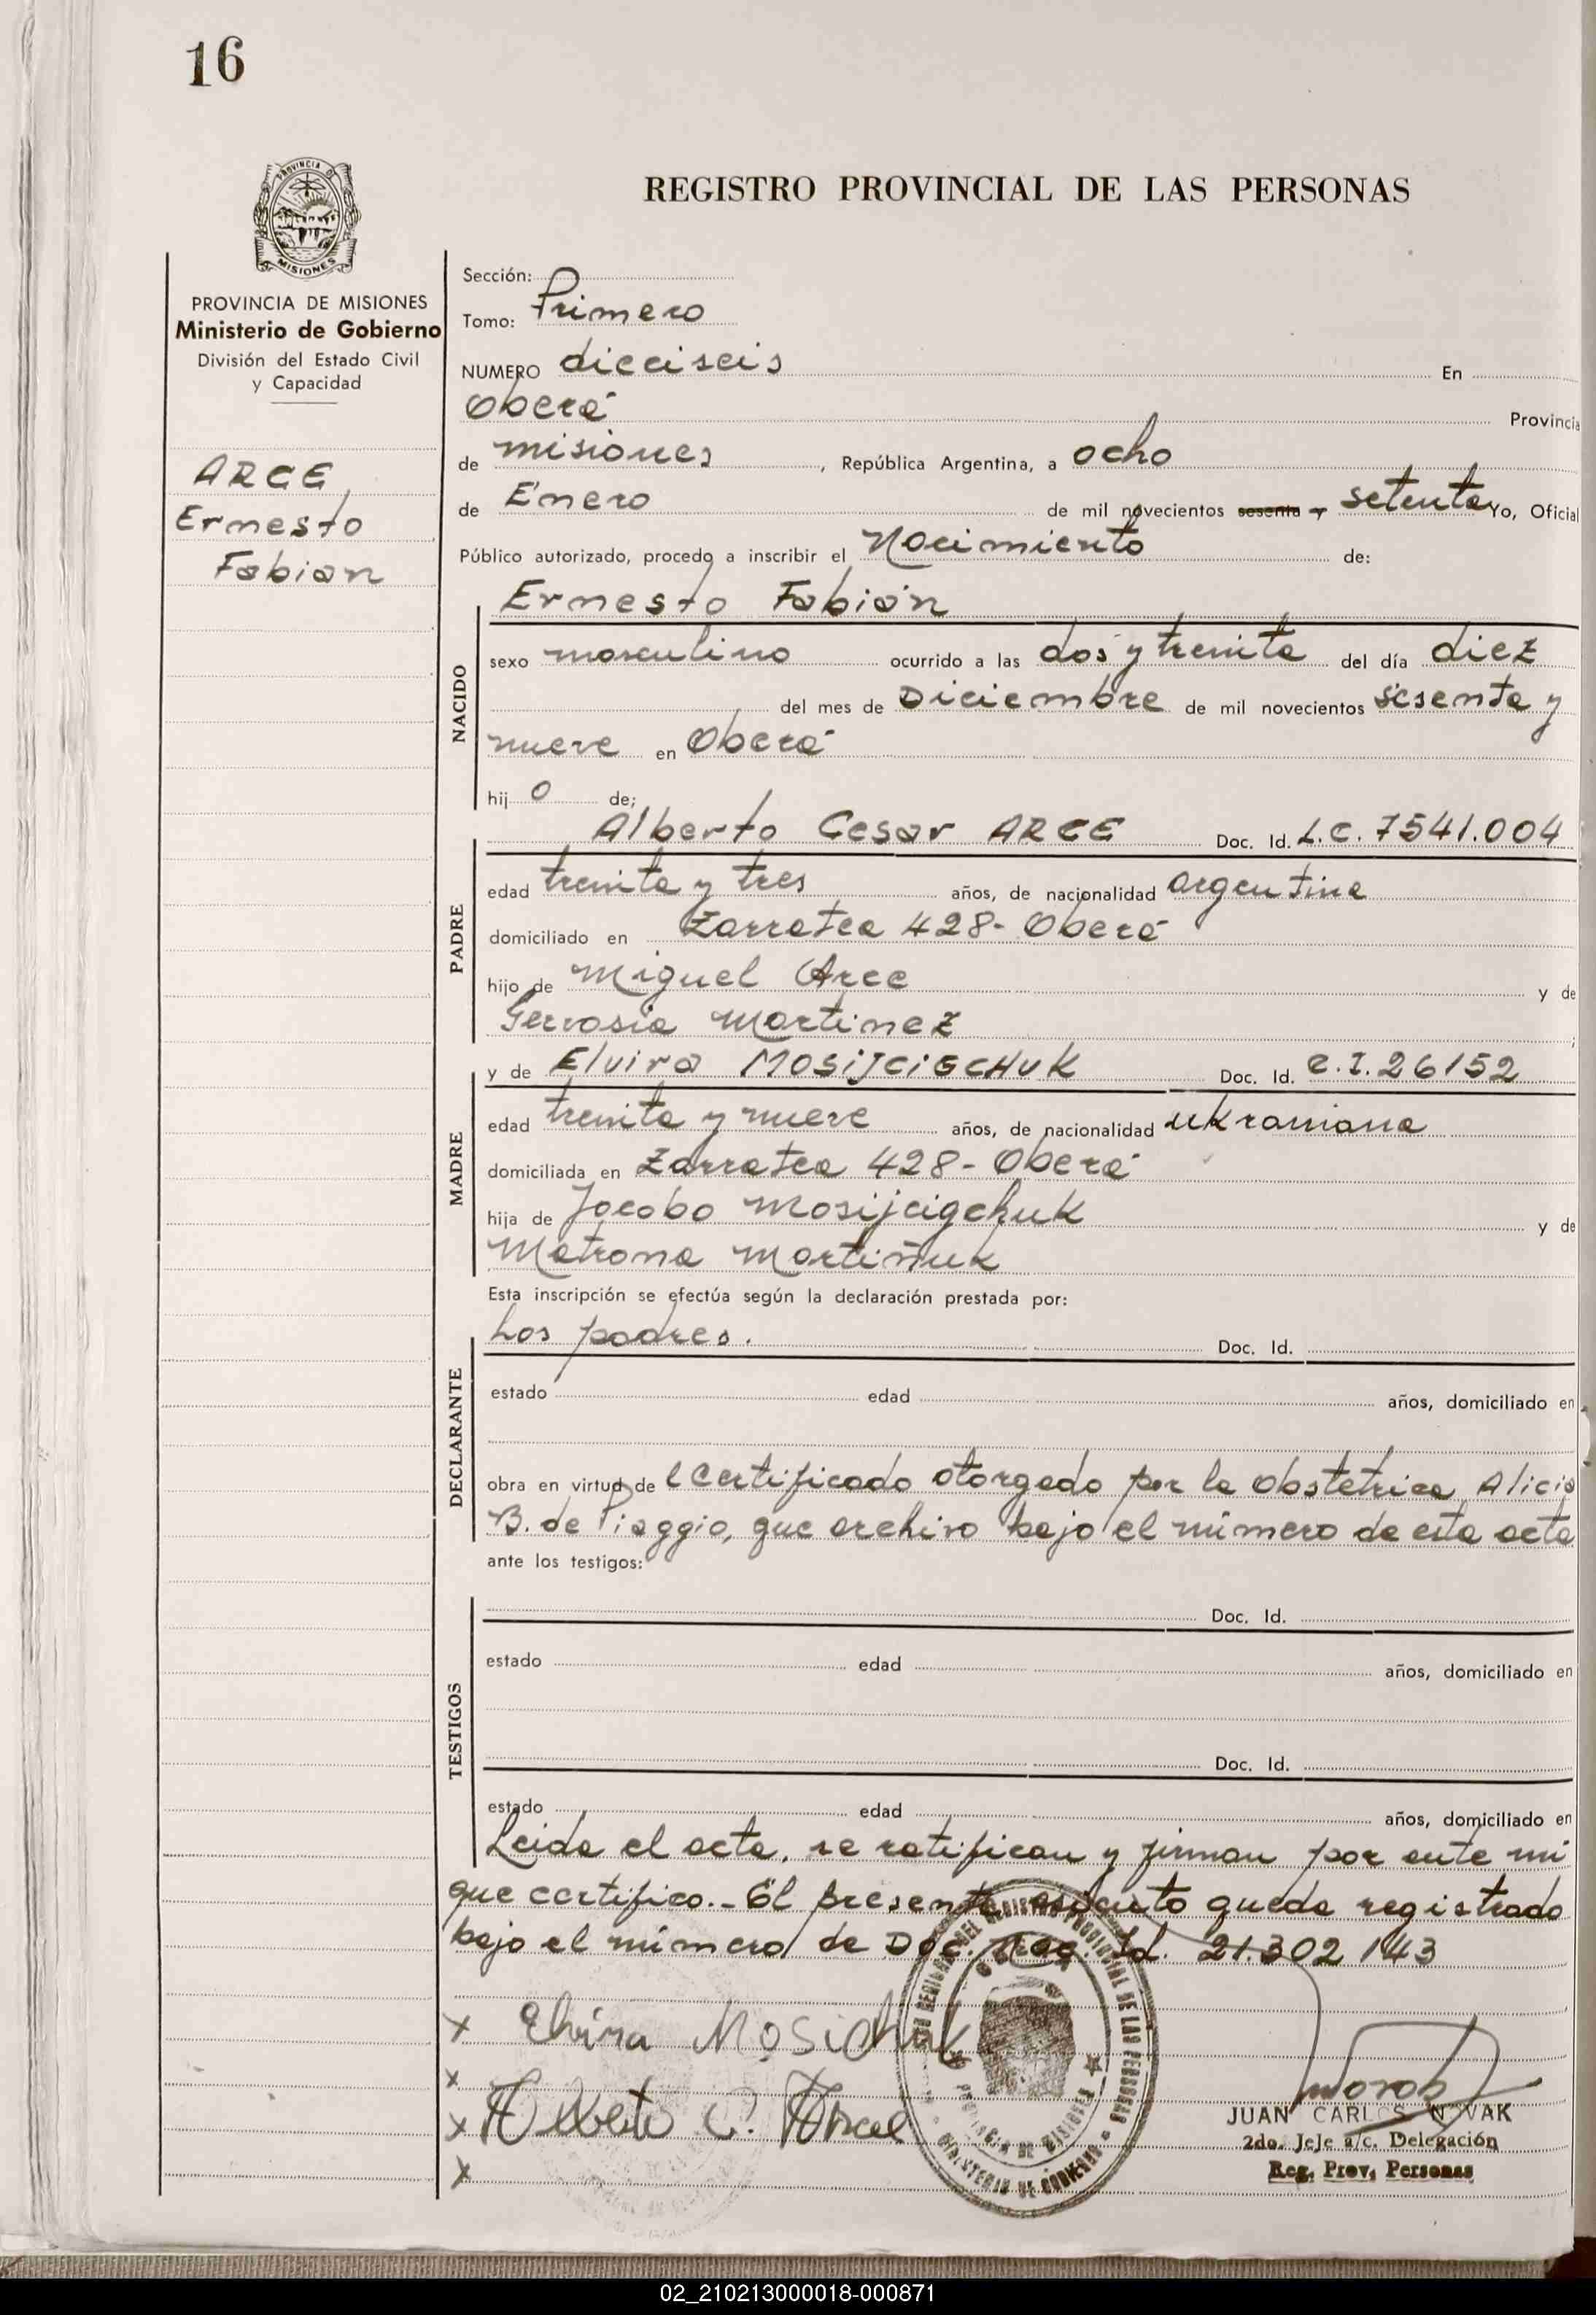 16
PROVINCIA DE
MISIONES
REGISTRO PROVINCIAL DE LAS PERSONAS
PROVINCIA DE MISIONES
Ministerio de Gobierno
División del Estado Civil
y Capacidad
ARCE,
Ernesto
Fabian
Sección:
Tomo: Primero
NUMERO dieciseis En
Oberá Provincia
de misiones, República Argentina, a ocho
de Enero de mil novecientos sesenta y setenta Yo, Oficial
Público autorizado, procedo a inscribir el Nacimiento de:
Ernesto Fabián
NACIDO
sexo masculino ocurrido a las dos y treinta del día diez
del mes de Diciembre de mil novecientos sesenta y
nueve en Oberá
hijo de;
Alberto Cesar ARCE Doc. Id. L.E. 7541.004
PADRE
edad treinta y tres años, de nacionalidad argentina
domiciliado en Zarratea 428- Oberá
hijo de Miguel Arce y de
Gervasia Martinez ;
y de Elvira MOSIJCIGCHUK Doc. Id. C.I. 26152
MADRE
edad treinta y nueve años, de nacionalidad ukraniana
domiciliada en Zarratea 428- Oberá
hija de Jacobo Mosijcigchuk y de
Matrona Martiñuk
Esta inscripción se efectúa según la declaración prestada por:
Los padres. Doc. Id.
DECLARANTE
estado edad años, domiciliado en
obra en virtud de l certificado otorgado por la Obstetrica Alicia
B. de Piaggio, que archivo bajo el número de esta acta
ante los testigos:
Doc. Id.
TESTIGOS
estado edad años, domiciliado en
Doc. Id.
estado edad años, domiciliado en
Leida el acta, se ratifican y firman por ante mi
que certifico.- El presente asiento queda registrado
bajo el número de Doc. Nac. Id. 21.302 143
x Elvira Mosichuk
x
x Alberto C. Arce
x
JUAN CARLOS NOVAK
2do. Jefe a/c. Delegación
Reg. Prov. Personas
02_210213000018-000871